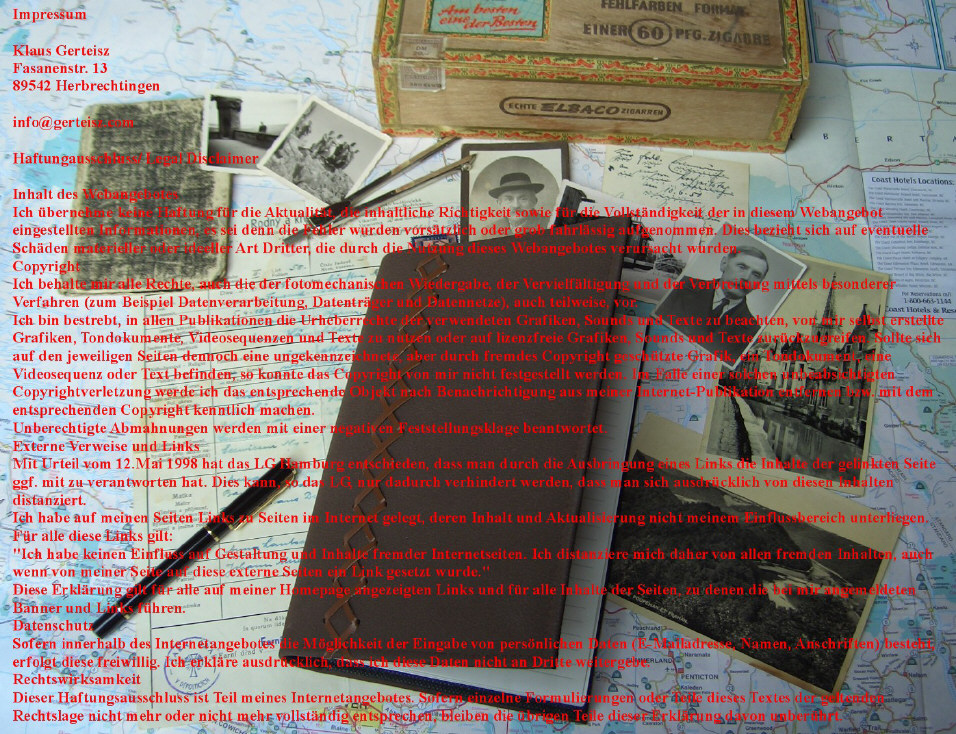 Impressum
Klaus Gerteisz
Fasanenstr. 13
89542 Herbrechtingen
info@gerteisz.com
Haftungausschluss/Legal Disclaimer
Inhalt des Webangebotes
Ich übernehme keine Haftung für die Aktualität, die inhaltliche Richtigkeit sowie für die Vollständigkeit der in diesem Webangebot
eingestellten Informationen, es sei denn die Fehler wurden vorsätzlich oder grob fahrlässig aufgenommen. Dies bezieht sich auf eventuelle
Schäden materieller oder ideeller Art Dritter, die durch die Nutzung dieses Webangebotes verursacht wurden
Copyright
Ich behalte mir alle Rechte, auch die der fotomechanischen Wiedergabe, der Vervielfältigung und der Verbreitung mittels besonderer
Verfahren (zum Beispiel Datenverarbeitung, Datenträger und Datennetze), auch teilweise, vor.
Ich bin bestrebt, in allen Publikationen die Urheberrechte der verwendeten Grafiken, Sounds und Texte zu beachten, von mir selbst erstellte
Grafiken, Tondokumente, Videosequenzen und Texte zu nutzen oder auf lizenzfreie Grafiken, Sounds und Texte zurückzugreifen. Sollte sich
auf den jeweiligen Seiten dennoch eine ungekennzeichnete, aber durch fremdes Copyright geschützte Grafik, ein Tondokument, eine
Videosequenz oder Text befinden, so konnte das Copyright von mir nicht festgestellt werden. Im Falle einer solchen unbeabsichtigten
Copyrightverletzung werde ich das entsprechende Objekt nach Benachrichtigung aus meiner Internet-Publikation entfernen bzw. mit dem
entsprechenden Copyright kenntlich machen.
Unberechtigte Abmahnungen werden mit einer negativen Feststellungsklage beantwortet.
Externe Verweise und Links
Mit Urteil vom 12.Mai 1998 hat das LG Hamburg entschieden, dass man durch die Ausbringung eines Links die Inhalte der gelinkten Seite
ggf. mit zu verantworten hat. Dies kann, so das LG, nur dadurch verhindert werden, dass man sich ausdrücklich von diesen Inhalten
distanziert.
Ich habe auf meinen Seiten Links zu Seiten im Internet gelegt, deren Inhalt und Aktualisierung nicht meinem Einflussbereich unterliegen.
Für alle diese Links gilt:
"Ich habe keinen Einfluss auf Gestaltung und Inhalte fremder Internetseiten. Ich distanziere mich daher von allen fremden Inhalten, auch
wenn von meiner Seite auf diese externe Seiten ein Link gesetzt wurde."
Diese Erklärung gilt für alle auf meiner Homepage angezeigten Links und für alle Inhalte der Seiten, zu denen die bei mir angemeldeten
Banner und Links führen.
Datenschutz
Sofern innerhalb des Internetangebotes die Möglichkeit der Eingabe von persönlichen Daten (E-Mailadresse, Namen, Anschriften) besteht,
erfolgt diese freiwillig. Ich erkläre ausdrücklich, dass ich diese Daten nicht an Dritte weitergebe.
Rechtswirksamkeit
Dieser Haftungsausschluss ist Teil meines Internetangebotes. Sofern einzelne Formulierungen oder Teile dieses Textes der geltenden
Rechtslage nicht mehr oder nicht mehr vollständig entsprechen, bleiben die übrigen Teile dieser Erklärung davon unberührt.
Am besten
eine der Besten
FEHLFARBEN FORMAT
EINER 60 PFG. ZIGARRE
ECHTE ELBACO ZIGARREN
Coast Hotels Locations:
1-800-663-1144
PENTICTON